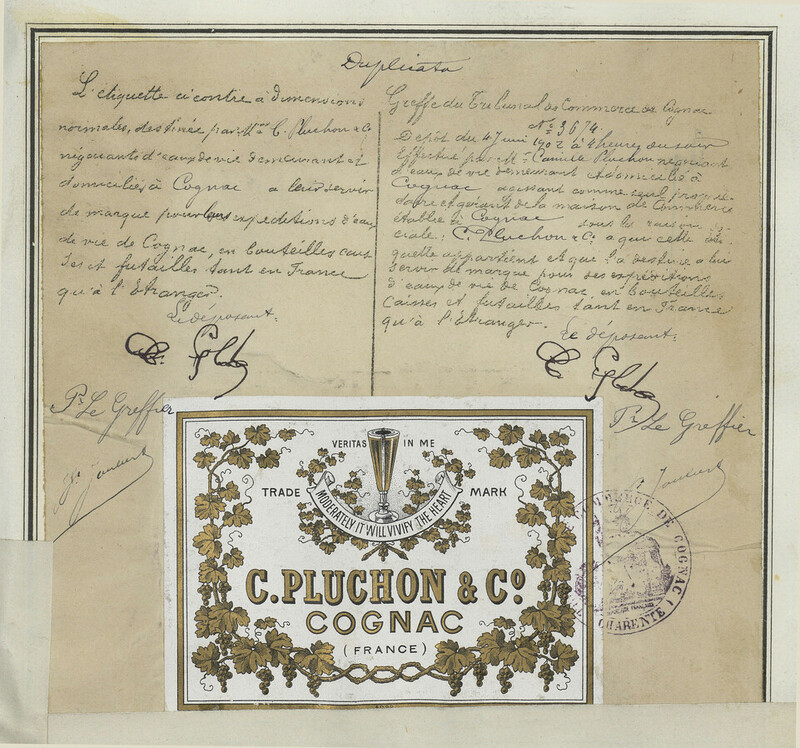 Duplicata
L'étiquette ci contre à dimensions
normales, destinée par Mrs C. Pluchon & Co
négociants d'eaux de vie demeurant et
domiciliés à Cognac a leur servir
de marque pour leurs expeditions d'eaux
de vie de Cognac, en bouteilles cais
ses et futailles tant en France
qu'à l'Etranger.
Le déposant:
Pr Le Greffier
Greffe du Tribunal de Commerce de Cognac
No 3674.
Dépôt du 4 Juin 1902 à 4 heures du soir
Effectué par Mr Camille Pluchon négociant
d'eaux de vie demeurant & domicilié à
Cognac agissant comme seul proprié
taire et gérant de la maison de Commerce
établie à Cognac sous la raison so
ciale: C. Pluchon & Co a qui cette éti
quette appartient et que l'a destinée a lui
servir de marque pour ses expéditions
d'eaux de vie de Cognac en bouteilles
Caisses et futailles tant en France
qu'à l'Etranger.
Le déposant:
Pr Le Greffier
VERITAS IN ME
TRADE MARK
MODERATELY IT WILL VIVIFY THE HEART
C. PLUCHON & Co
COGNAC
(FRANCE)
COMMERCE DE COGNAC (CHARENTE)